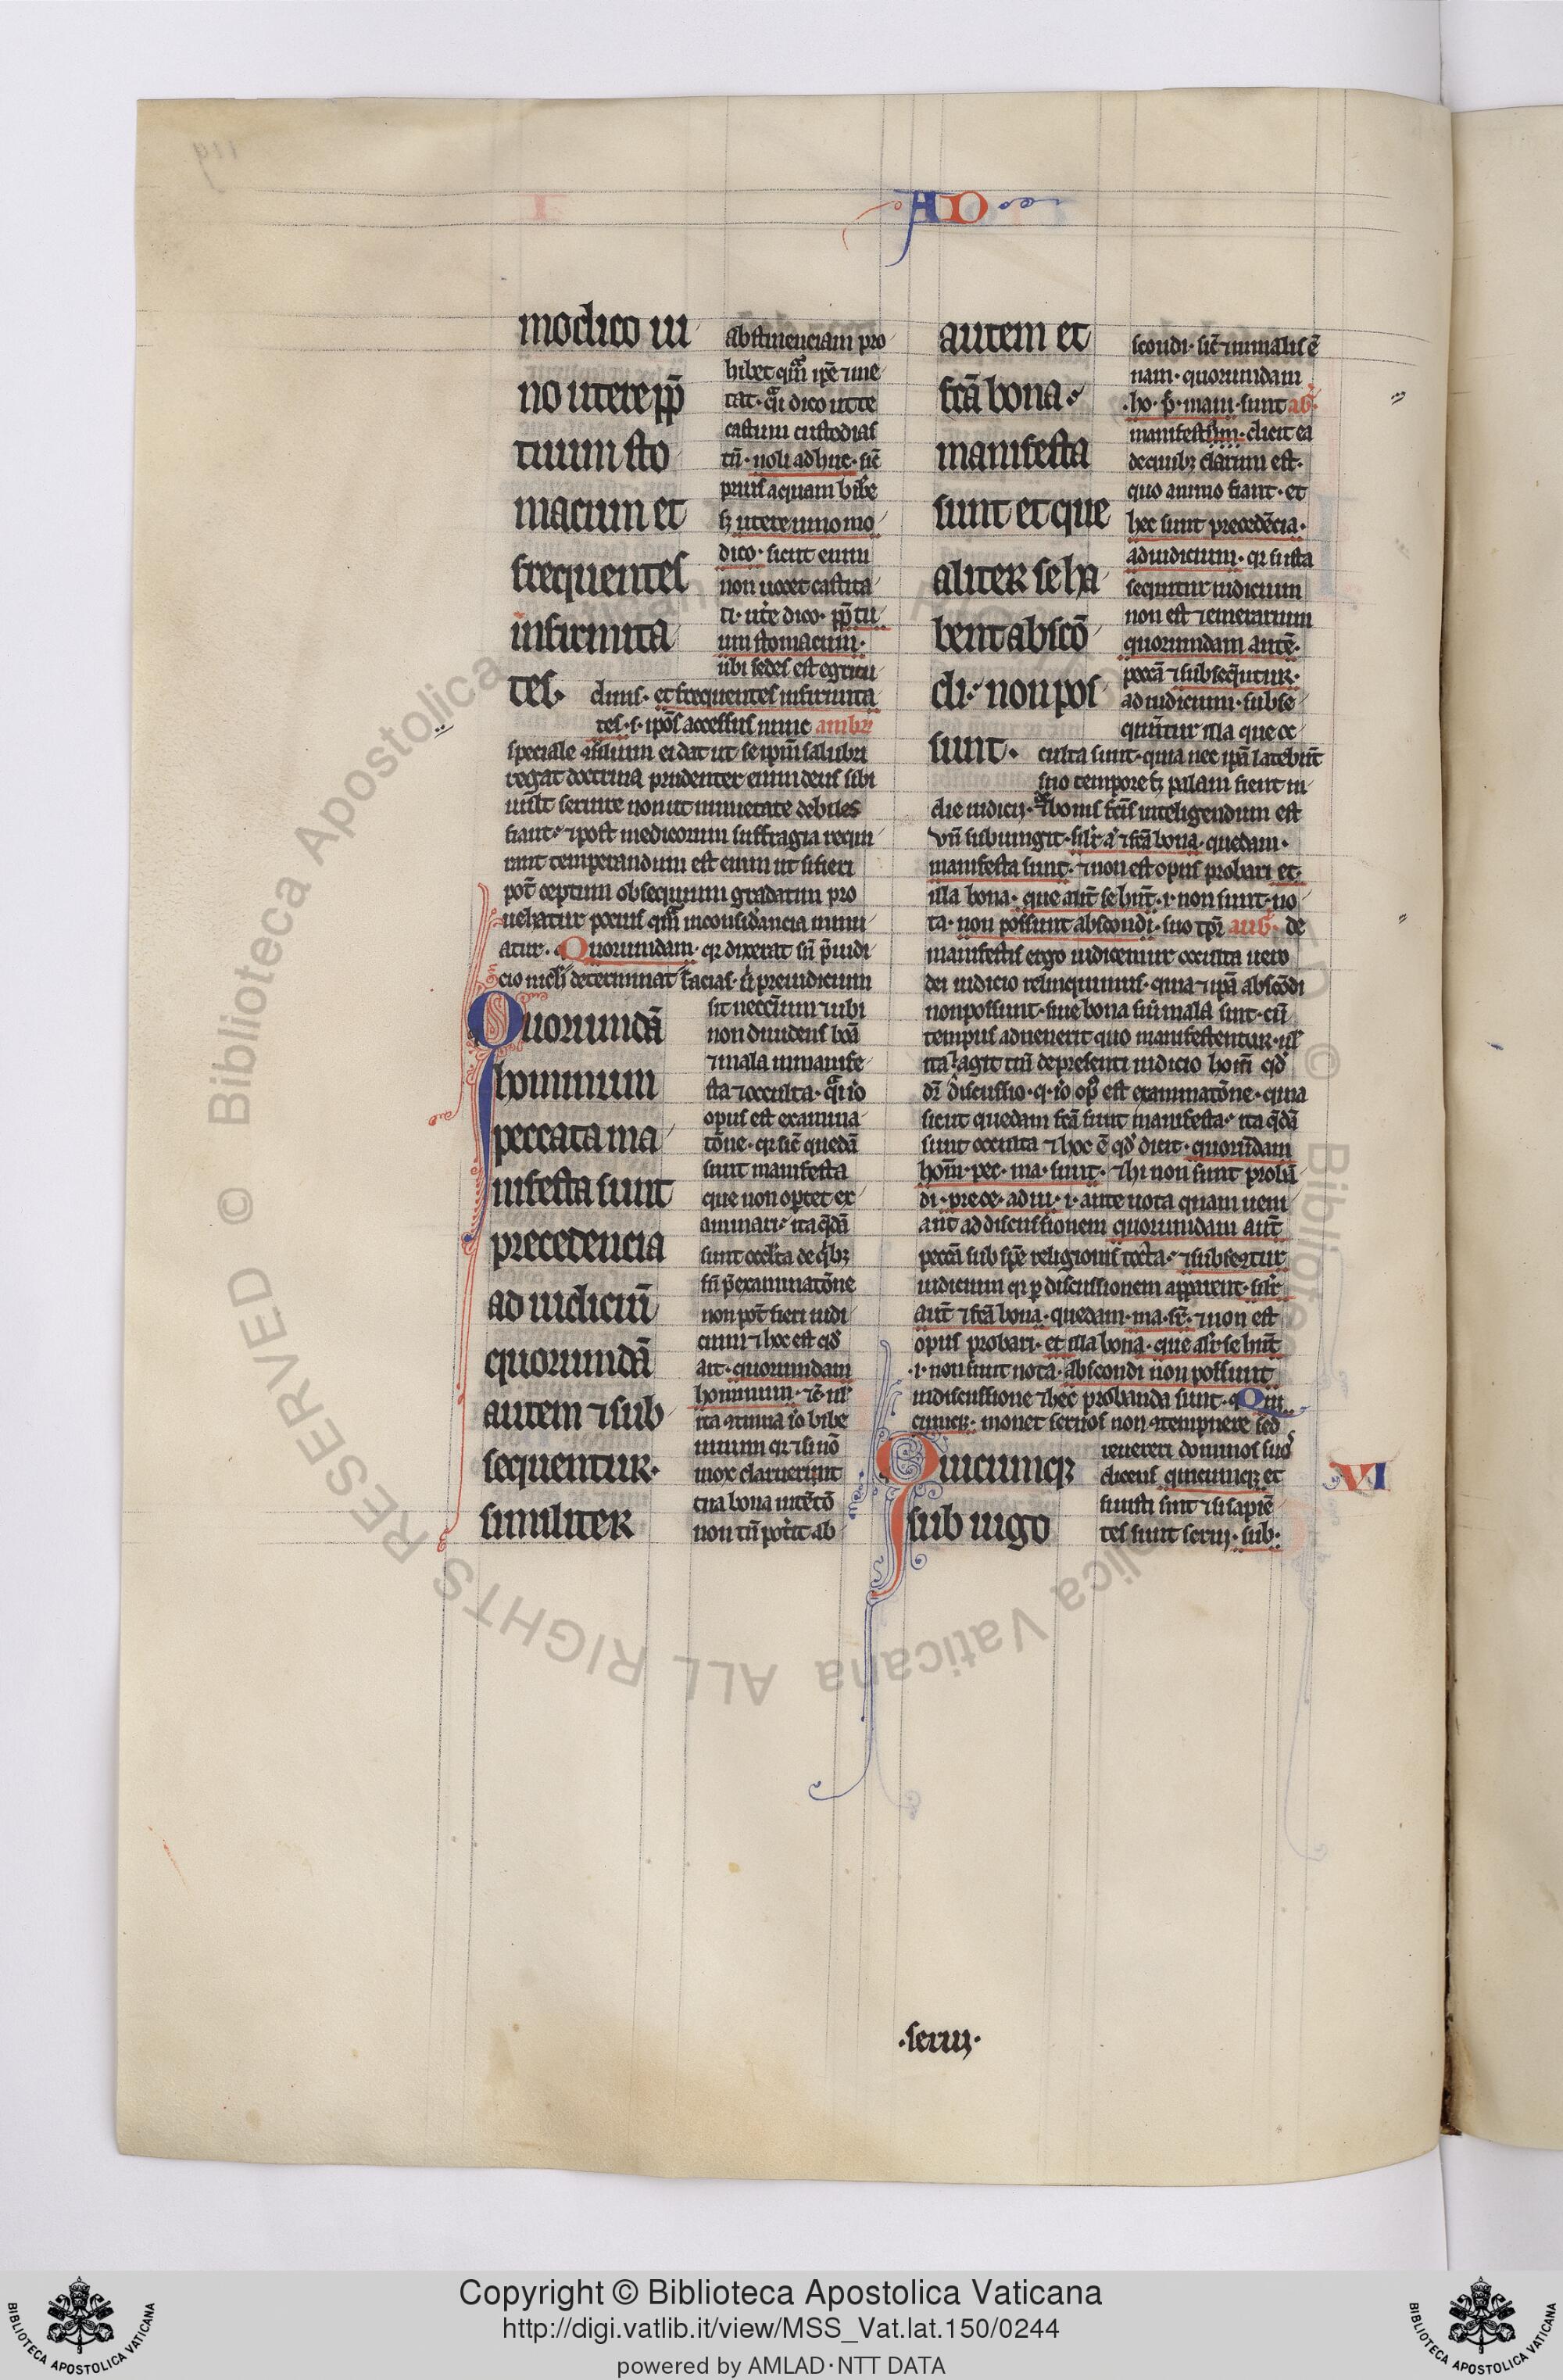 AD
modico ui
no utere pp̄
tuum sto
macum et
frequentes
infirmita
tes.
abstinenciam pro
hibet qm̄ ip̄e ⁊ me
tat. q̄i dico ut te
castum custodias
tn̄. noli adhuc. sic̄
prius aquam bibe
sꝫ utere uino mo
dico. sicut enim
non nocet castita
ti. ut̄e dico. pp̄ tu
um stomacum.
ubi sedes est egritu
dinis. et frequentes infirmita
tes. s. ip̄os accessus nunc ambr̄
speciale ɔsilium ei dat ut se ip̄m salubri
regat doctrina prudenter enim deus sibi
uult seruire non ut inmuetate debiles
fiant. ⁊ post medicorum suffragia requi
runt temperandum est enim ut si fieri
pot̄ ceptum obsequium gradatim pro
uehatur pocius qm̄ inconsid̄ancia minu
atur. Quorumdam. qr dixerat sn̄ p̄iudi
cio nich̄ determinat facias. ū preiudicium
Quorundā
hominum
peccata ma
nifesta sunt
precedencia
ad iudiciū
quorundā
autem ⁊ sub
sequentur.
similiter
sit necc̄ium ⁊ ubi
non diuidens bōa
⁊ mala in manife
sta ⁊ occulta. q̄i io
opus est examina
tōne. qr sic̄ quedā
sunt manifesta
que non opʒtet ex
aminari. ita q̄dā
sunt occl̄ta de q̄bꝫ
sn̄ p̄examinatōne
non pot̄ fieri iudi
cium ⁊ hoc est qd̄
ait. quorumdam
hominum. ⁊c̄ ul̄
ita ɔtinua io bibe
uinum qr ⁊ si nō
mox claruerunt
tua bona intētō
non tn̄ pot̄it ab
autem et
fcā bona.
manifesta
sunt et que
aliter se ha
bent abscō
di. non pos
sunt.
scondi. sic̄ ⁊ in malis ē
nam. quorumdam
.ho. p̄. mani. sunt ab
manifestum. dicit ea
de quibꝫ clarum est.
quo animo fiant. et
hec sunt precedēcia.
ad iudicium. qr iusta
sequitur iudicium
non est ⁊ emerarium
quorumdam autē.
peccā ⁊ subseq̄ntur.
ad iudicium. subse
quūtur illa que oc
culta sunt. quia nec ip̄a latebūt
suo tempore sꝫ palam fient in
die iudicij. ⁊ de bonis fcīs intelligendum est
Vn̄ subiungit. silr̄ a ⁊ fcā bona. quedam.
manifesta sunt. ⁊ non est opus probari et
illa bona. que aut̄ se hn̄t. i. non sunt. no
ta. non possunt abscondi. suo tp̄r aug. de
manifestis ergo iudicemur occulta uero
dei iudicio relinquimus. quia ⁊ ip̄a abscōdi
non possunt. siue bona siū mala sint. cū
tempus aduenerit quo manifestentur. ul̄
ita agit tm̄ de presenti iudicio hoīm qd̄
dr̄ discussio. q. io op̄ est examinatōne. quia
sicut quedam fcā sunt manifesta. ita q̄dā
sunt occulta ⁊ hoc ē qd̄ dicit. quorūdam
hom̄. pec. ma. sunt. ⁊ hi non sunt probā
di. prece. ad iu. i. ante nota quam ueni
ant ad discussionem quorumdam aut̄
peccā sub spe religionis tecta. ⁊ subseqntur
iudicium qr p discussionem apparent. silr̄
aut̄ ⁊ fcā bona. quedam. ma. sr̄. ⁊ non est
opus probari. et illa bona. que alr̄ se hn̄t
.i. non sunt nota. abscondi non possunt
in discussione ⁊ hec probanda sunt. Qui
cumqꝫ. monet seruos non ɔtempnere sed
Quicumqꝫ
sub iugo
reuereri dominos suos
dicens quicumqꝫ et
si iusti sint ⁊ si sapiē
tes sunt serui. sub.
VI
.serui.
© Biblioteca Apostolica Vaticana ALL RIGHTS RESERVED
Copyright © Biblioteca Apostolica Vaticana
http://digi.vatlib.it/view/MSS_Vat.lat.150/0244
powered by AMLAD·NTT DATA
BIBLIOTECA APOSTOLICA VATICANA
BIBLIOTECA APOSTOLICA VATICANA